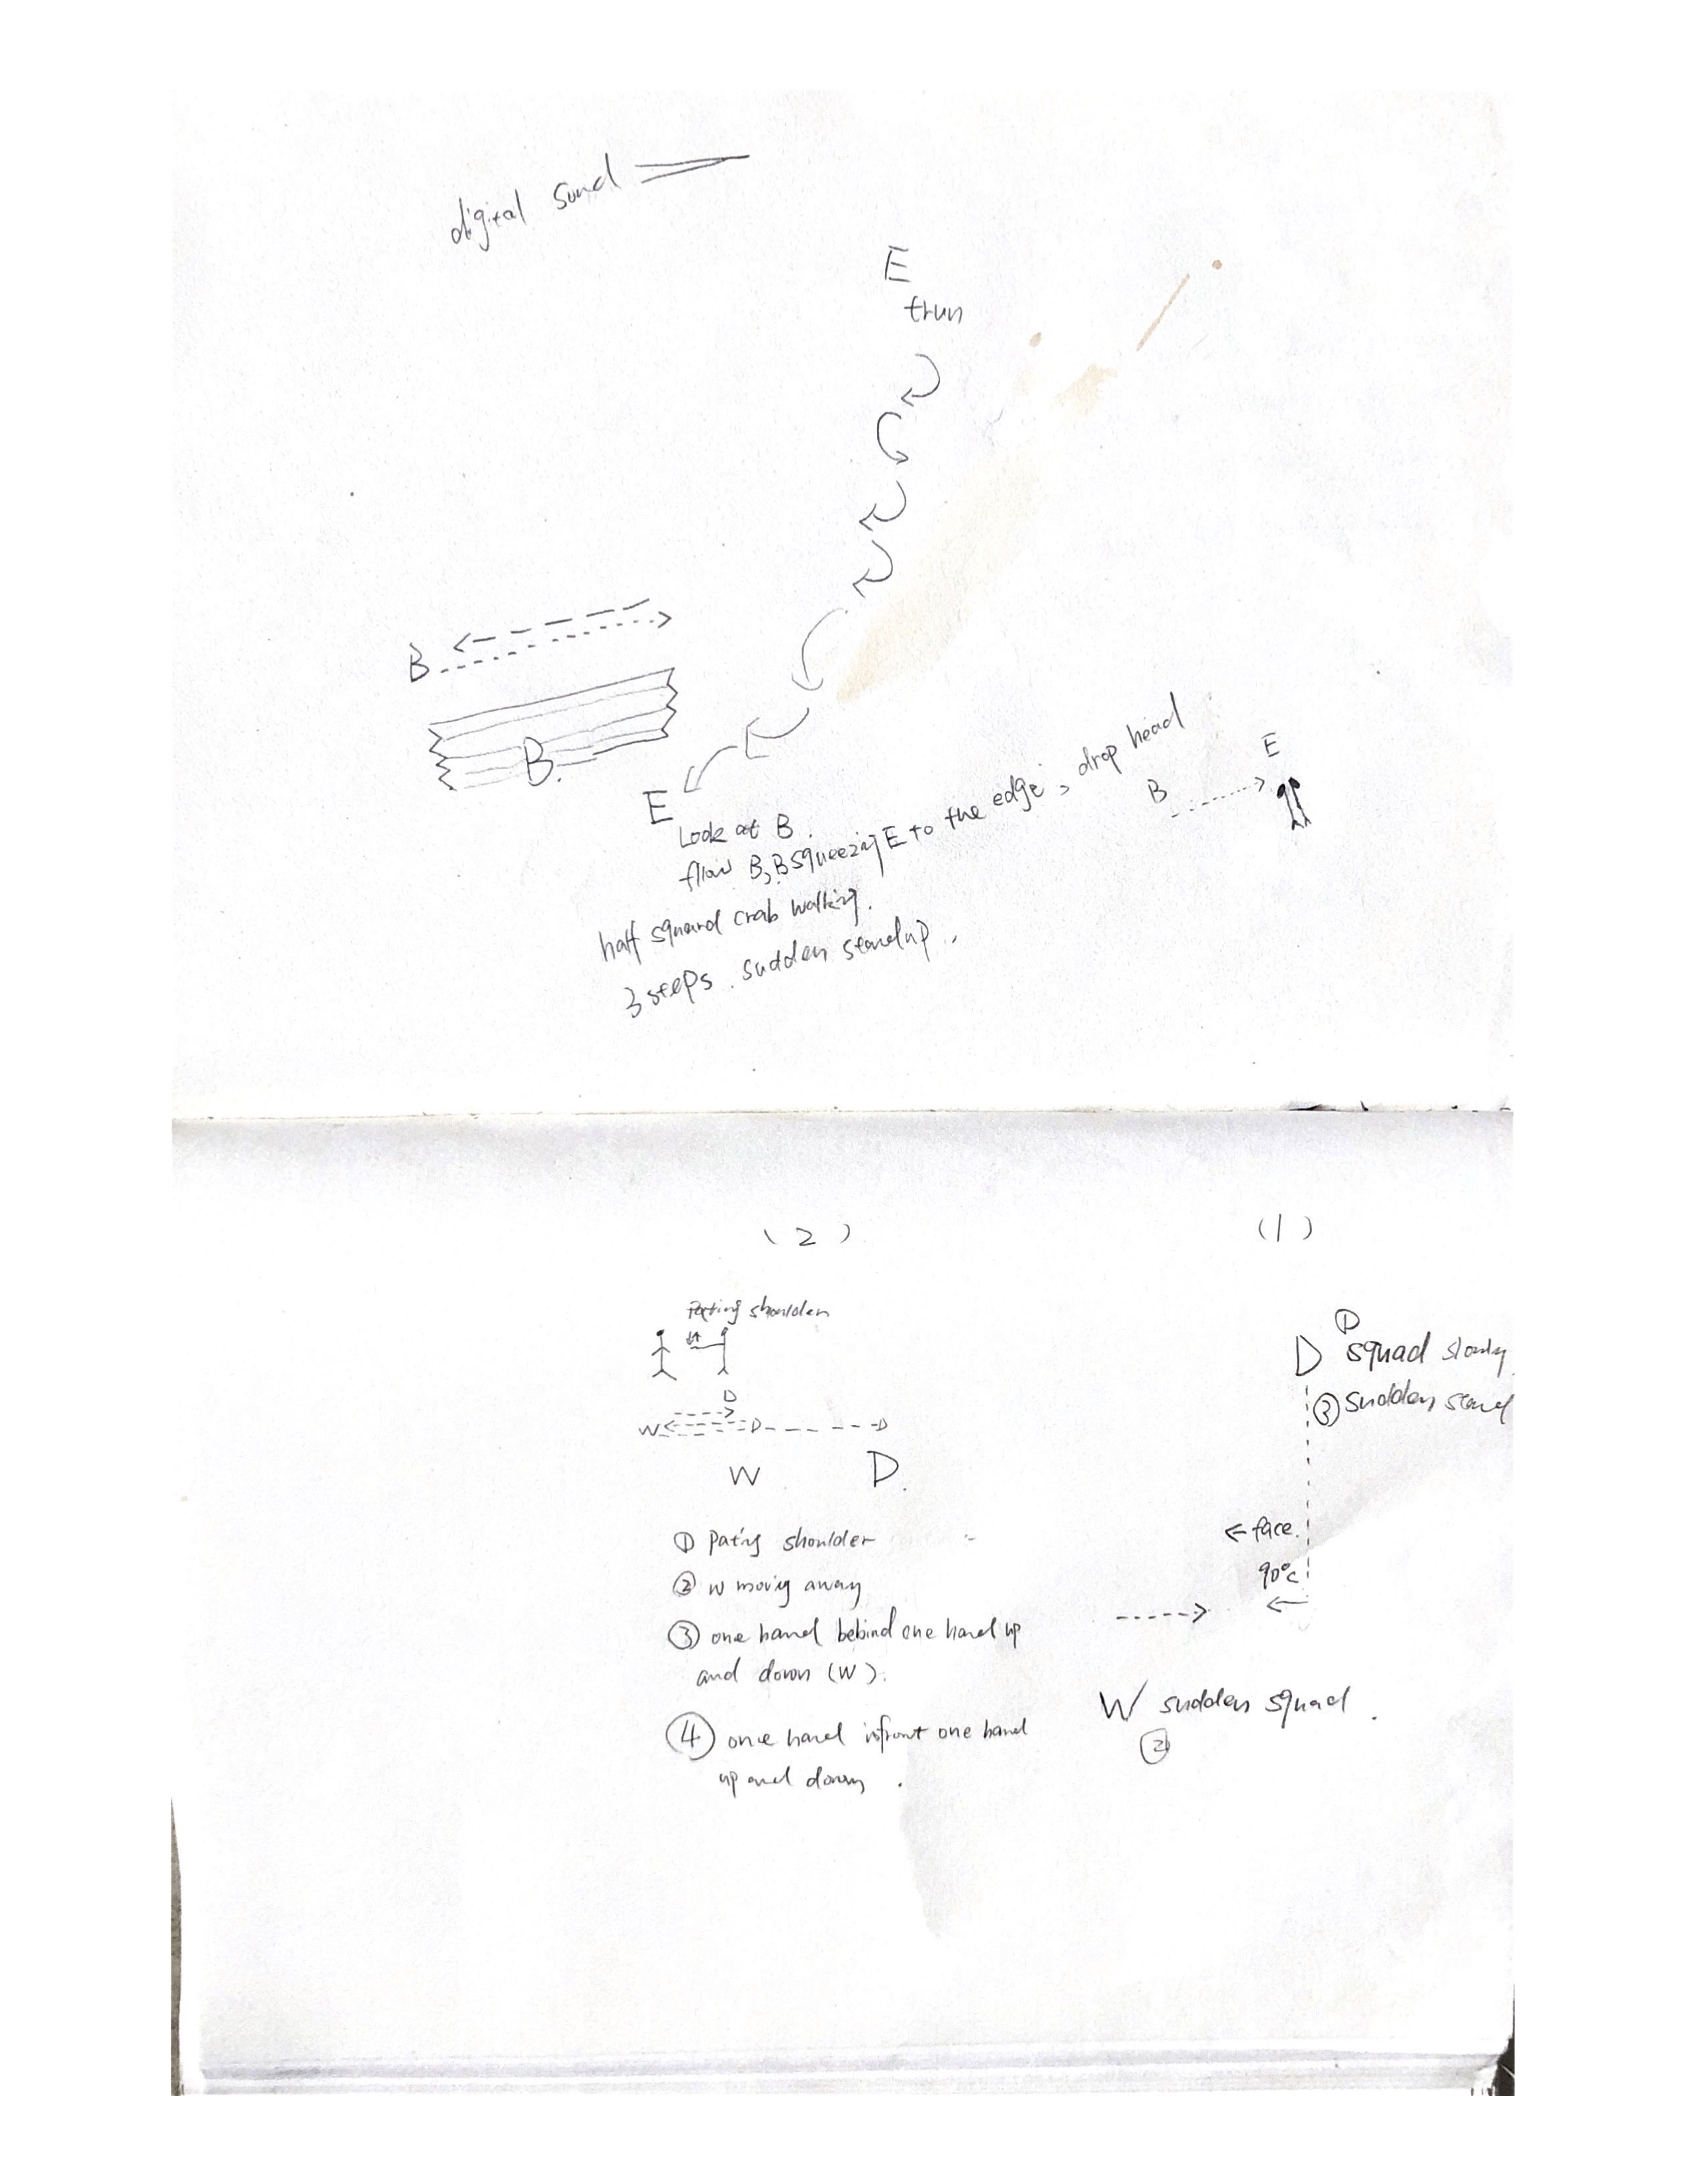 digital sound
E
trun
B
B.
E
Look at B.
fllow B, B squeezing E to the edge, drop head
half squard crab walking.
3 steps. sudden standup.
B
E
(2)
Patting shoulder
D
W D D
W D.
① Pating shoulder
② W moving away
③ one hand behind one hand up
and down (W).
④ once hand infront one hand
up and down.
(1)
①
D squad slowly
③ sudden stand
← face.
90°c
W sudden squad.
②